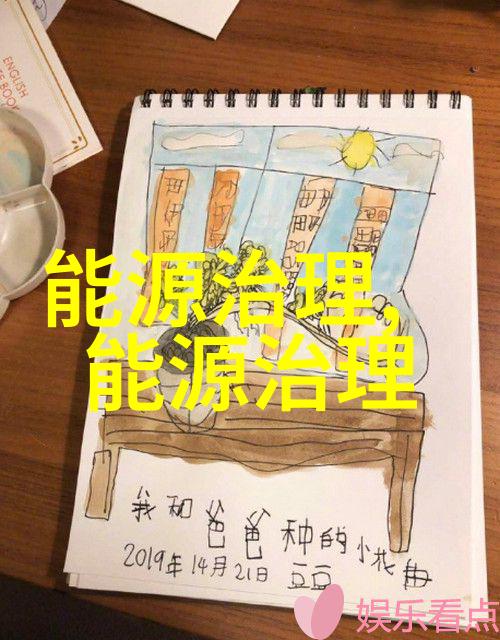 ENGLISH
能源治理,
能源治理
我和爸爸种的小花
2019年14月21日 豆豆
娱乐看点